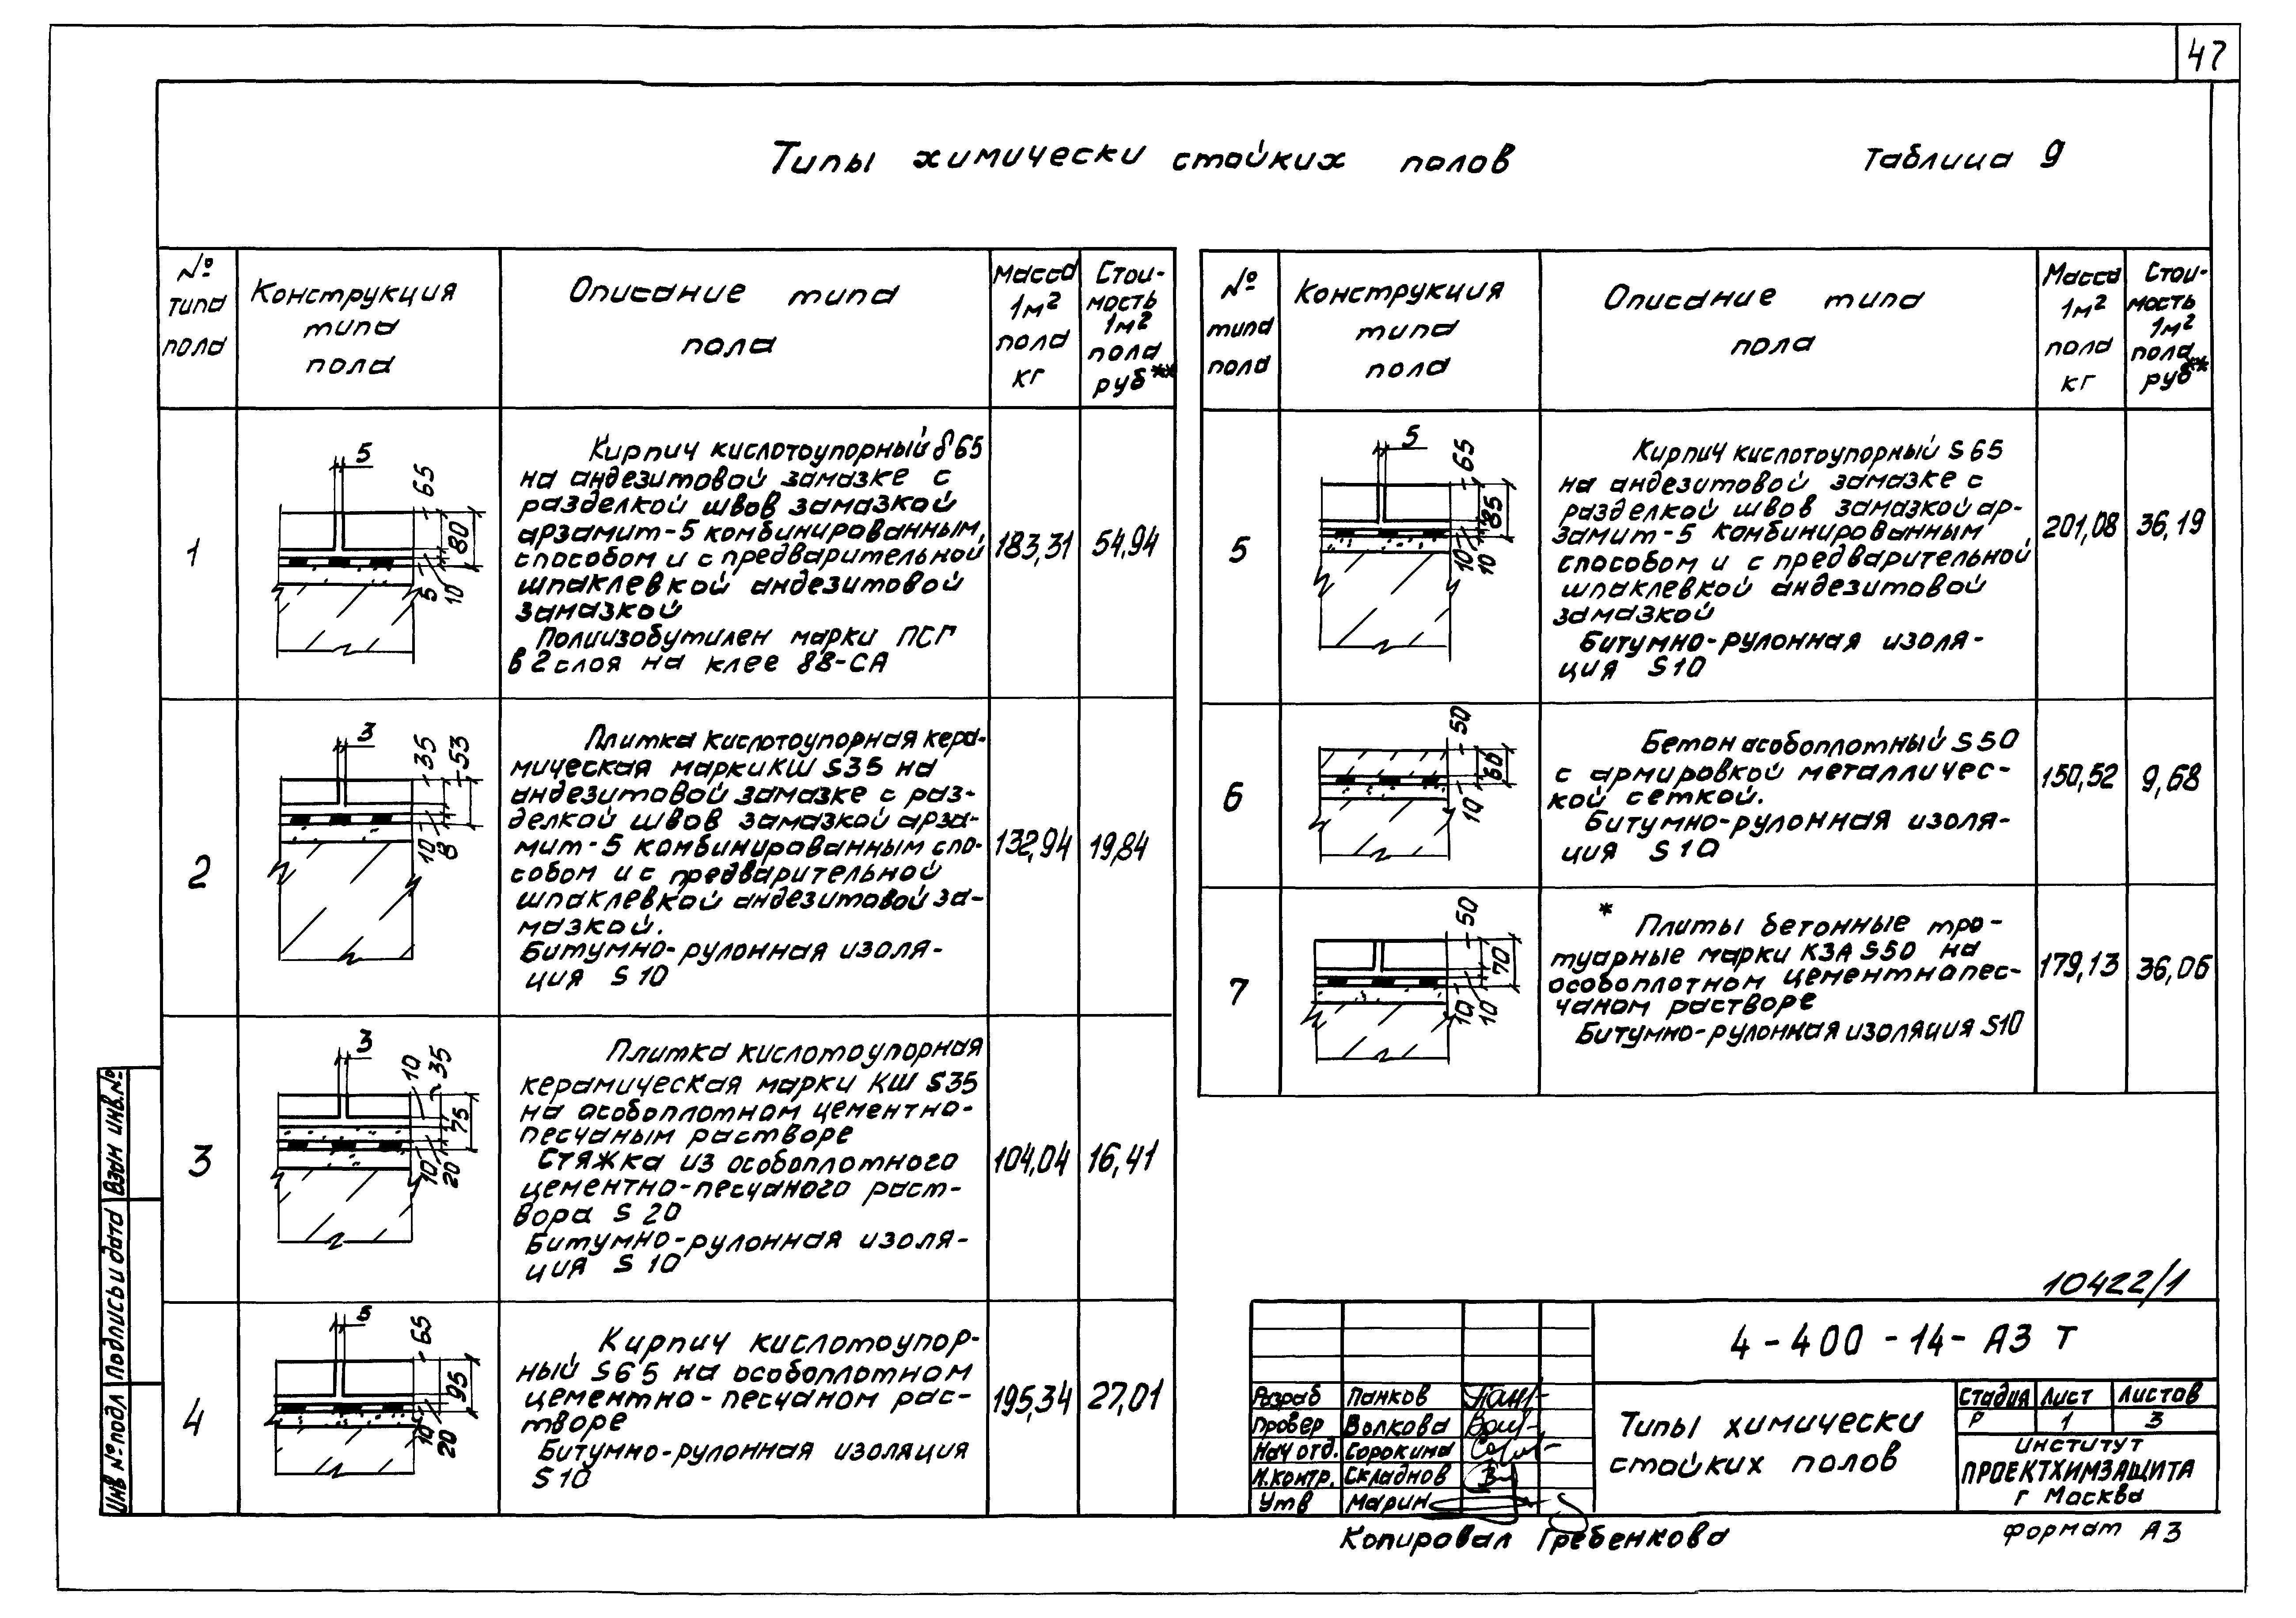 47
Типы химически стойких полов
Таблица 9
№
типа
пола
Конструкция
типа
пола
Описание типа
пола
Масса
1м²
пола
кг
Стои-
мость
1м²
пола
руб**
1
5
65
80
5
10
Кирпич кислотоупорный δ65
на андезитовой замазке с
разделкой швов замазкой
арзамит-5 комбинированным
способом и с предварительной
шпаклевкой андезитовой
замазкой
Полиизобутилен марки ПСГ
в 2 слоя на клее 88-СА
183,31
54,94
2
3
35
53
10
8
Плитка кислотоупорная кера-
мическая марки КШ S35 на
андезитовой замазке с раз-
делкой швов замазкой арза-
мит-5 комбинированным спо-
собом и с предварительной
шпаклевкой андезитовой за-
мазкой.
Битумно-рулонная изоля-
ция S 10
132,94
19,84
3
3
10
35
75
10
20
Плитка кислотоупорная
керамическая марки КШ S35
на особоплотном цементно-
песчаным растворе
Стяжка из особоплотного
цементно-песчаного раст-
вора S 20
Битумно-рулонная изоля-
ция S 10
104,04
16,41
4
5
65
95
10
20
Кирпич кислотоупор-
ный S65 на особоплотном
цементно-песчаном рас-
творе
Битумно-рулонная изоляция
S 10
195,34
27,01
№
типа
пола
Конструкция
типа
пола
Описание типа
пола
Масса
1м²
пола
кг
Стои-
мость
1м²
пола
руб**
5
5
65
85
10
10
Кирпич кислотоупорный S65
на андезитовой замазке с
разделкой швов замазкой ар-
замит-5 комбинированным
способом и с предварительной
шпаклевкой андезитовой
замазкой
Битумно-рулонная изоля-
ция S10
201,08
36,19
6
50
60
10
Бетон особоплотный S50
с армировкой металличес-
кой сеткой.
Битумно-рулонная изоля-
ция S 10
150,52
9,68
7
50
70
10
10
* Плиты бетонные тро-
туарные марки КЗА S50 на
особоплотном цементнопес-
чаном растворе
Битумно-рулонная изоляция S10
179,13
36,06
10422/1
4-400-14-АЗ Т
Разраб Панков
Провер Волкова
Нач отд. Сорокина
Н.контр. Складнов
Утв Марин
Типы химически
стойких полов
Стадия Лист Листов
Р 1 3
Институт
ПРОЕКТХИМЗАЩИТА
г Москва
Копировал Гребенкова
Формат А3
Инв № подл
Подпись и дата
Взам инв. №